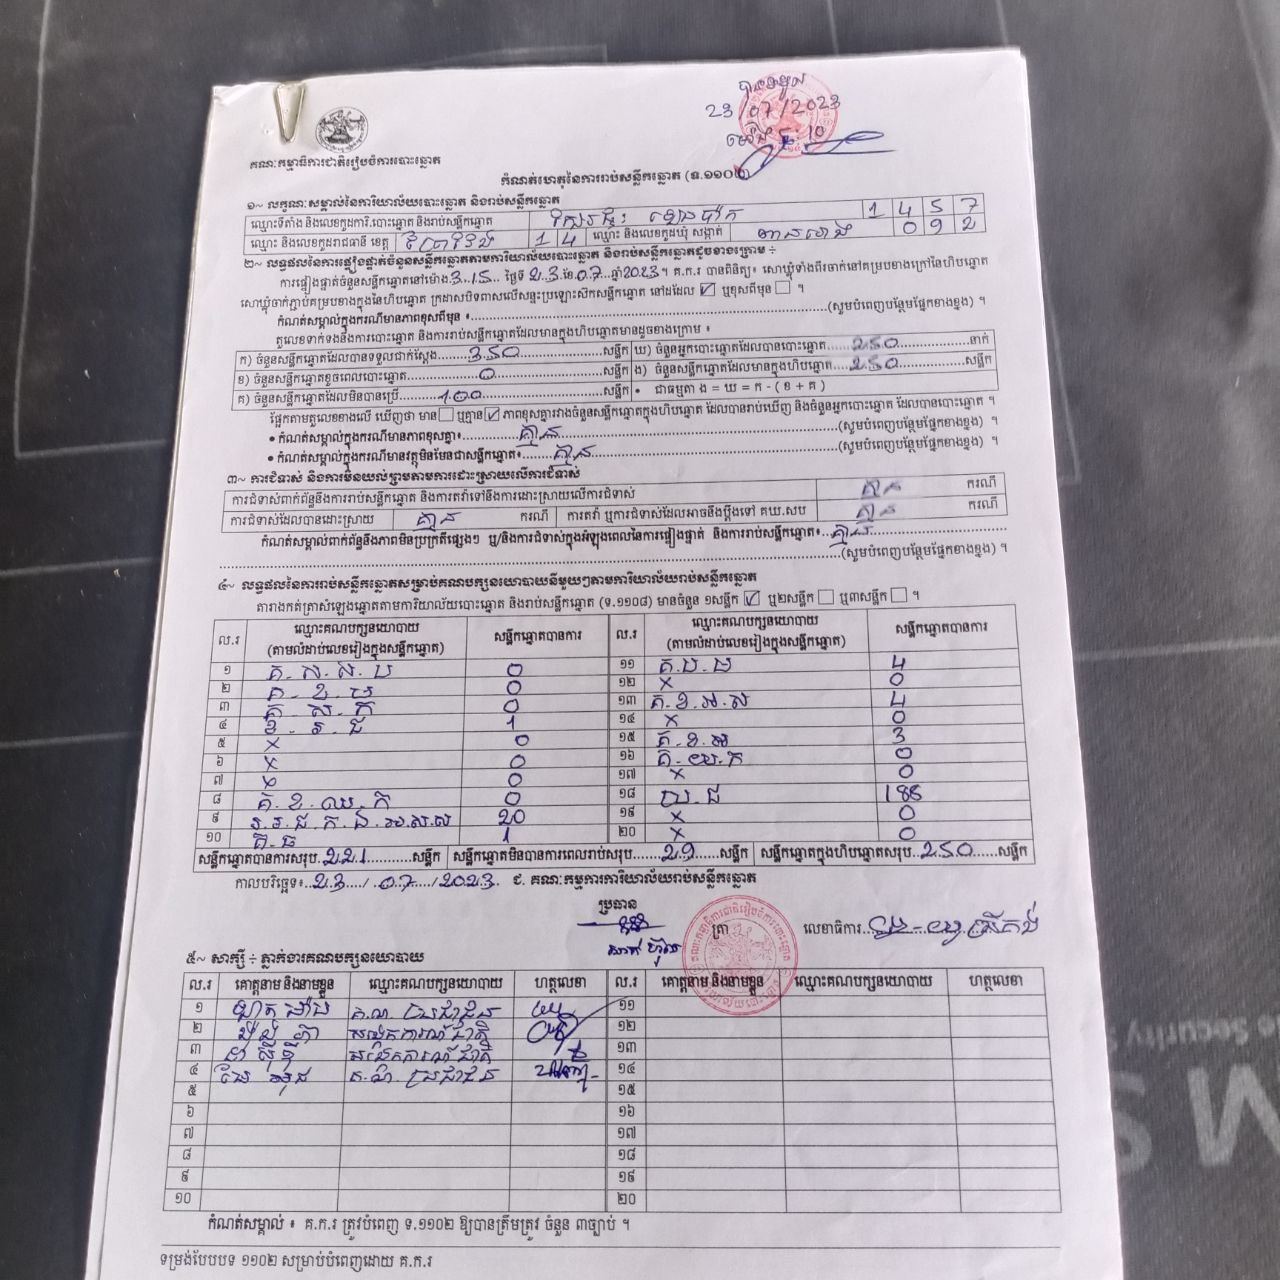 23/07/2023
គណៈកម្មាធិការជាតិរៀបចំការបោះឆ្នោត
កំណត់ហេតុនៃការរាប់សន្លឹកឆ្នោត (ទ.១១០២)
១~ លក្ខណៈសម្គាល់នៃការិយាល័យបោះឆ្នោត និងរាប់សន្លឹកឆ្នោត
ឈ្មោះទីតាំង និងលេខកូដការិ.បោះឆ្នោត និងរាប់សន្លឹកឆ្នោត 1 4 5 7
ឈ្មោះ និងលេខកូដរាជធានី ខេត្ត ព្រៃវែង 1 4 ឈ្មោះ និងលេខកូដឃុំ សង្កាត់ 0 9 2
២~ លទ្ធផលនៃការផ្ទៀងផ្ទាត់ចំនួនសន្លឹកឆ្នោតតាមការិយាល័យបោះឆ្នោត និងរាប់សន្លឹកឆ្នោតដូចខាងក្រោម ÷
ការផ្ទៀងផ្ទាត់ចំនួនសន្លឹកឆ្នោតនៅម៉ោង 3:15 ថ្ងៃទី 23 ខែ 07 ឆ្នាំ 2023។ គ.ក.រ បានពិនិត្យ៖ សោឃ្លុំទាំងពីរចាក់នៅគម្របខាងក្រៅនៃហិបឆ្នោត
សោឃ្លុំចាក់ភ្ជាប់គម្របខាងក្នុងនៃហិបឆ្នោត ក្រដាសបិទពាសលើសន្ទះប្រឡោះសិកសន្លឹកឆ្នោត នៅដដែល ☑ ឬខុសពីមុន ☐ ។
កំណត់សម្គាល់ក្នុងករណីមានភាពខុសពីមុន ៖ (សូមបំពេញបន្ថែមផ្នែកខាងខ្នង) ។
តួលេខទាក់ទងនឹងការបោះឆ្នោត និងការរាប់សន្លឹកឆ្នោតដែលមានក្នុងហិបឆ្នោតមានដូចខាងក្រោម ៖
ក) ចំនួនសន្លឹកឆ្នោតដែលបានទទួលជាក់ស្តែង 350 សន្លឹក ឃ) ចំនួនអ្នកបោះឆ្នោតដែលបានបោះឆ្នោត 250 នាក់
ខ) ចំនួនសន្លឹកឆ្នោតខូចពេលបោះឆ្នោត 0 សន្លឹក ង) ចំនួនសន្លឹកឆ្នោតដែលមានក្នុងហិបឆ្នោត 250 សន្លឹក
គ) ចំនួនសន្លឹកឆ្នោតដែលមិនបានប្រើ 100 សន្លឹក • ជាធម្មតា ង = ឃ = ក - ( ខ + គ )
ផ្អែកតាមតួលេខខាងលើ ឃើញថា មាន ☐ ឬគ្មាន ☑ ភាពខុសគ្នារវាងចំនួនសន្លឹកឆ្នោតក្នុងហិបឆ្នោត ដែលបានរាប់ឃើញ និងចំនួនអ្នកបោះឆ្នោត ដែលបានបោះឆ្នោត ។
• កំណត់សម្គាល់ក្នុងករណីមានភាពខុសគ្នា៖ គ្មាន (សូមបំពេញបន្ថែមផ្នែកខាងខ្នង) ។
• កំណត់សម្គាល់ក្នុងករណីមានវត្ថុមិនមែនជាសន្លឹកឆ្នោត៖ គ្មាន (សូមបំពេញបន្ថែមផ្នែកខាងខ្នង) ។
៣~ ការជំទាស់ និងការមិនយល់ព្រមតាមការដោះស្រាយលើការជំទាស់
ការជំទាស់ពាក់ព័ន្ធនឹងការរាប់សន្លឹកឆ្នោត និងការតវ៉ាទៅនឹងការដោះស្រាយលើការជំទាស់ គ្មាន ករណី
ការជំទាស់ដែលបានដោះស្រាយ គ្មាន ករណី ការតវ៉ា ឬការជំទាស់ដែលអាចនឹងប្តឹងទៅ គឃ.សប គ្មាន ករណី
កំណត់សម្គាល់ពាក់ព័ន្ធនឹងភាពមិនប្រក្រតីផ្សេងៗ ឬ/និងការជំទាស់ក្នុងអំឡុងពេលនៃការផ្ទៀងផ្ទាត់ និងការរាប់សន្លឹកឆ្នោត៖ គ្មាន
(សូមបំពេញបន្ថែមផ្នែកខាងខ្នង) ។
៤~ លទ្ធផលនៃការរាប់សន្លឹកឆ្នោតសម្រាប់គណបក្សនយោបាយនីមួយៗតាមការិយាល័យរាប់សន្លឹកឆ្នោត
តារាងកត់ត្រាសំឡេងឆ្នោតតាមការិយាល័យបោះឆ្នោត និងរាប់សន្លឹកឆ្នោត (ទ.១១០៨) មានចំនួន ១សន្លឹក ☑ ឬ២សន្លឹក ☐ ឬ៣សន្លឹក ☐ ។
ល.រ ឈ្មោះគណបក្សនយោបាយ (តាមលំដាប់លេខរៀងក្នុងសន្លឹកឆ្នោត) សន្លឹកឆ្នោតបានការ ល.រ ឈ្មោះគណបក្សនយោបាយ (តាមលំដាប់លេខរៀងក្នុងសន្លឹកឆ្នោត) សន្លឹកឆ្នោតបានការ
១ 0 ១១ 4
២ 0 ១២ x 0
៣ គ.ស.ក 0 ១៣ គ.ខ.អ.ស 4
៤ ខ.រ.ជ 1 ១៤ x 0
៥ x 0 ១៥ គ.ខ.អ 3
៦ x 0 ១៦ គ.យ.ក 0
៧ x 0 ១៧ x 0
៨ គ.ខ.ឈ.ក 0 ១៨ ប.ជ 188
៩ 20 ១៩ x 0
១០ គ.ធ 1 ២០ x 0
សន្លឹកឆ្នោតបានការសរុប 221 សន្លឹក សន្លឹកឆ្នោតមិនបានការពេលរាប់សរុប 29 សន្លឹក សន្លឹកឆ្នោតក្នុងហិបឆ្នោតសរុប 250 សន្លឹក
កាលបរិច្ឆេទ៖ 23/07/2023. ជ. គណៈកម្មការការិយាល័យរាប់សន្លឹកឆ្នោត
ប្រធាន
ត្រា លេខាធិការ
៥~ សាក្សី ÷ ភ្នាក់ងារគណបក្សនយោបាយ
ល.រ គោត្តនាម និងនាមខ្លួន ឈ្មោះគណបក្សនយោបាយ ហត្ថលេខា ល.រ គោត្តនាម និងនាមខ្លួន ឈ្មោះគណបក្សនយោបាយ ហត្ថលេខា
១ គ.ប. ប្រជាជន ១១
២ សង្កេតការណ៍ជាតិ ១២
៣ សង្កេតការណ៍ជាតិ ១៣
៤ គ.ប. ប្រជាជន ១៤
៥ ១៥
៦ ១៦
៧ ១៧
៨ ១៨
៩ ១៩
១០ ២០
កំណត់សម្គាល់ ៖ គ.ក.រ ត្រូវបំពេញ ទ.១១០២ ឱ្យបានត្រឹមត្រូវ ចំនួន ៣ច្បាប់ ។
ទម្រង់បែបបទ ១១០២ សម្រាប់បំពេញដោយ គ.ក.រ